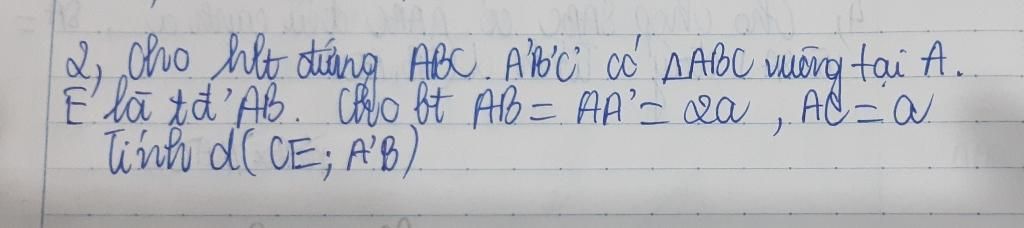 2, Cho hlt đứng ABC.A'B'C' có ΔABC vuông tại A.
E là tđ' AB. Cho bt AB = AA' = 2a, AC = a
Tính d(CE; A'B)